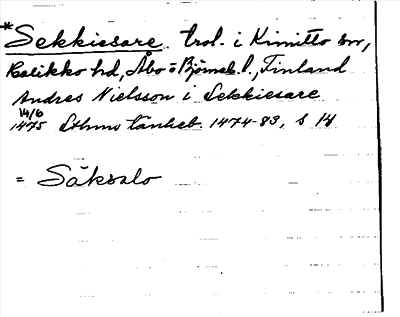 *Sekkiesare trol. i Kimitto sn,
Halikko hd, Åbo = Björneb. l., Finland
Andres Nielsson i Sekkiesare
14/6
1475 Sthms tänkeb. 1474-83, s 14
= Säksalo